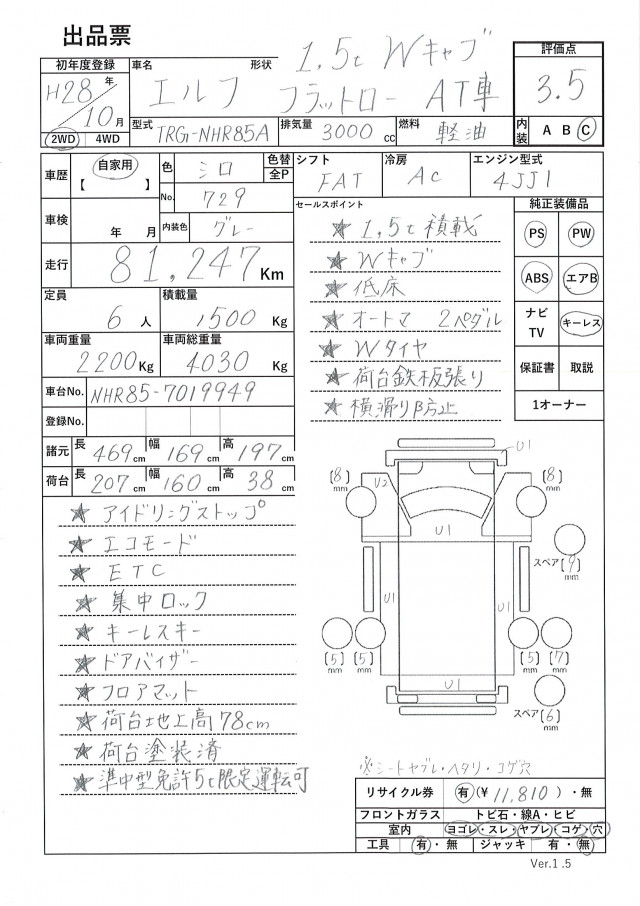 出品票
初年度登録 車名 形状 1.5t Wキャブ 評価点
H28年 エルフ フラットロー AT車 3.5
10月
2WD 4WD 型式 TRG-NHR85A 排気量 3000cc 燃料 軽油 内装 A B C
車歴 自家用 色 シロ 色替 全P シフト FAT 冷房 AC エンジン型式 4JJ1
【 】 No. 729 セールスポイント 純正装備品
車検 年 月 内装色 グレー ★ 1.5t積載 PS PW
走行 81,247Km ★ Wキャブ
★ 低床 ABS エアB
定員 6人 積載量 1500Kg ★ オートマ 2ペダル ナビ TV キーレス
車両重量 2200Kg 車両総重量 4030Kg ★ Wタイヤ
★ 荷台鉄板張り 保証書 取説
車台No. NHR85-7019949 ★ 横滑り防止 1オーナー
登録No.
諸元 長 469cm 幅 169cm 高 197cm
荷台 長 207cm 幅 160cm 高 38cm
★ アイドリングストップ
★ エコモード
★ ETC
★ 集中ロック
★ キーレスキー
★ ドアバイザー
★ フロアマット
★ 荷台地上高78cm
★ 荷台塗装済
★ 準中型免許5t限定運転可
U1
[8]mm U2 [8]mm
U1
スペア[9]mm
U1 U1
[5]mm [5]mm [5]mm [7]mm
U1
スペア[6]mm
※シートヤブレ・ヘタリ・コゲ穴
リサイクル券 有(¥11,810)・無
フロントガラス トビ石・線A・ヒビ
室内 ヨゴレ・スレ・ヤブレ・コゲ・穴
工具 有・無 ジャッキ 有・無
Ver.1.5